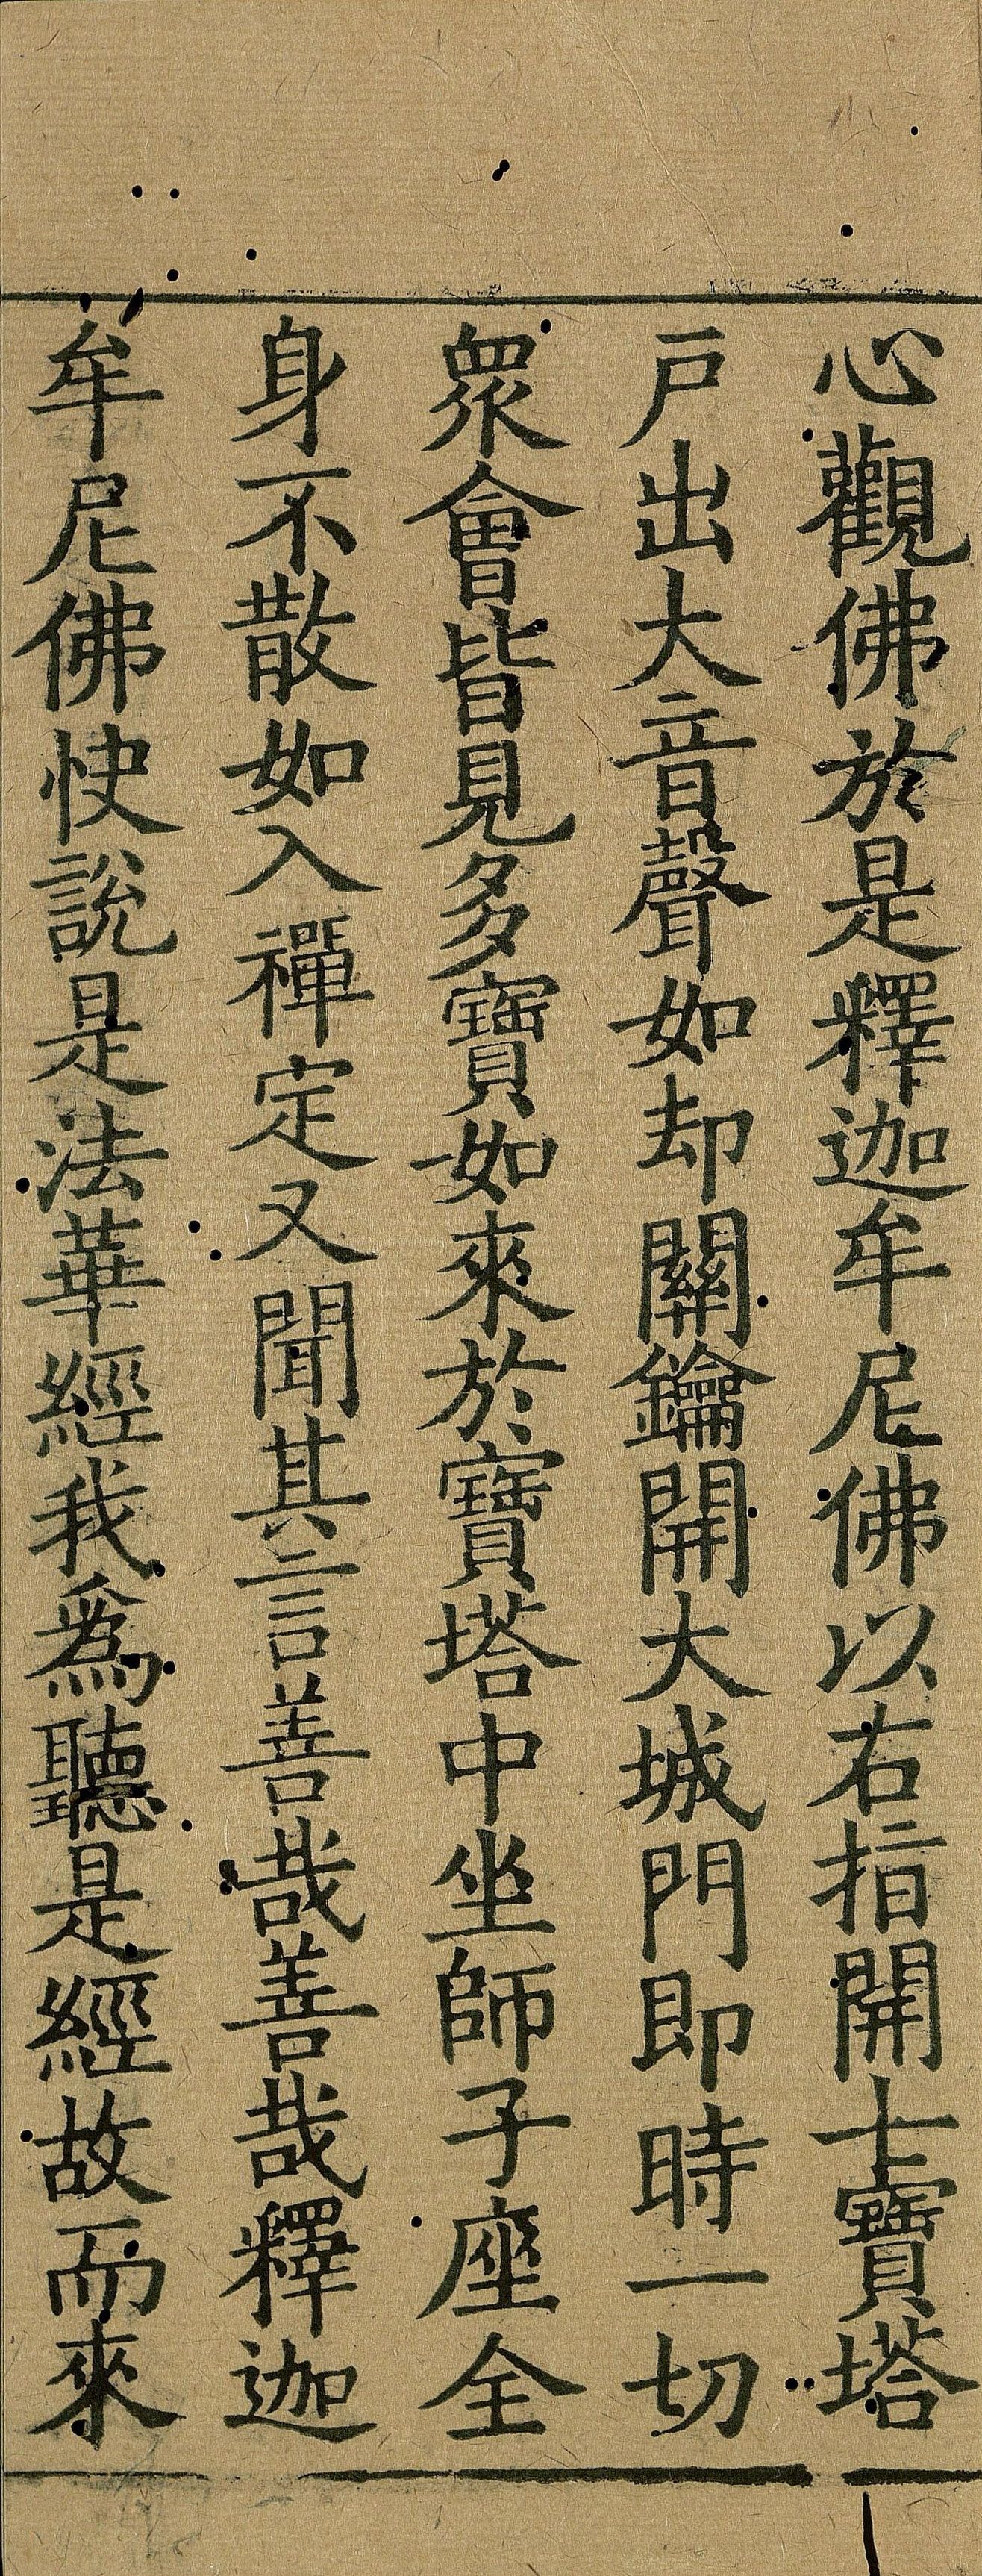 心觀佛於是釋迦牟尼佛以右指開七寶塔
戶出大音聲如却關鑰開大城門即時一切
眾會皆見多寶如來於寶塔中坐師子座全
身不散如入禪定又聞其言善哉善哉釋迦
牟尼佛快說是法華經我爲聽是經故而來